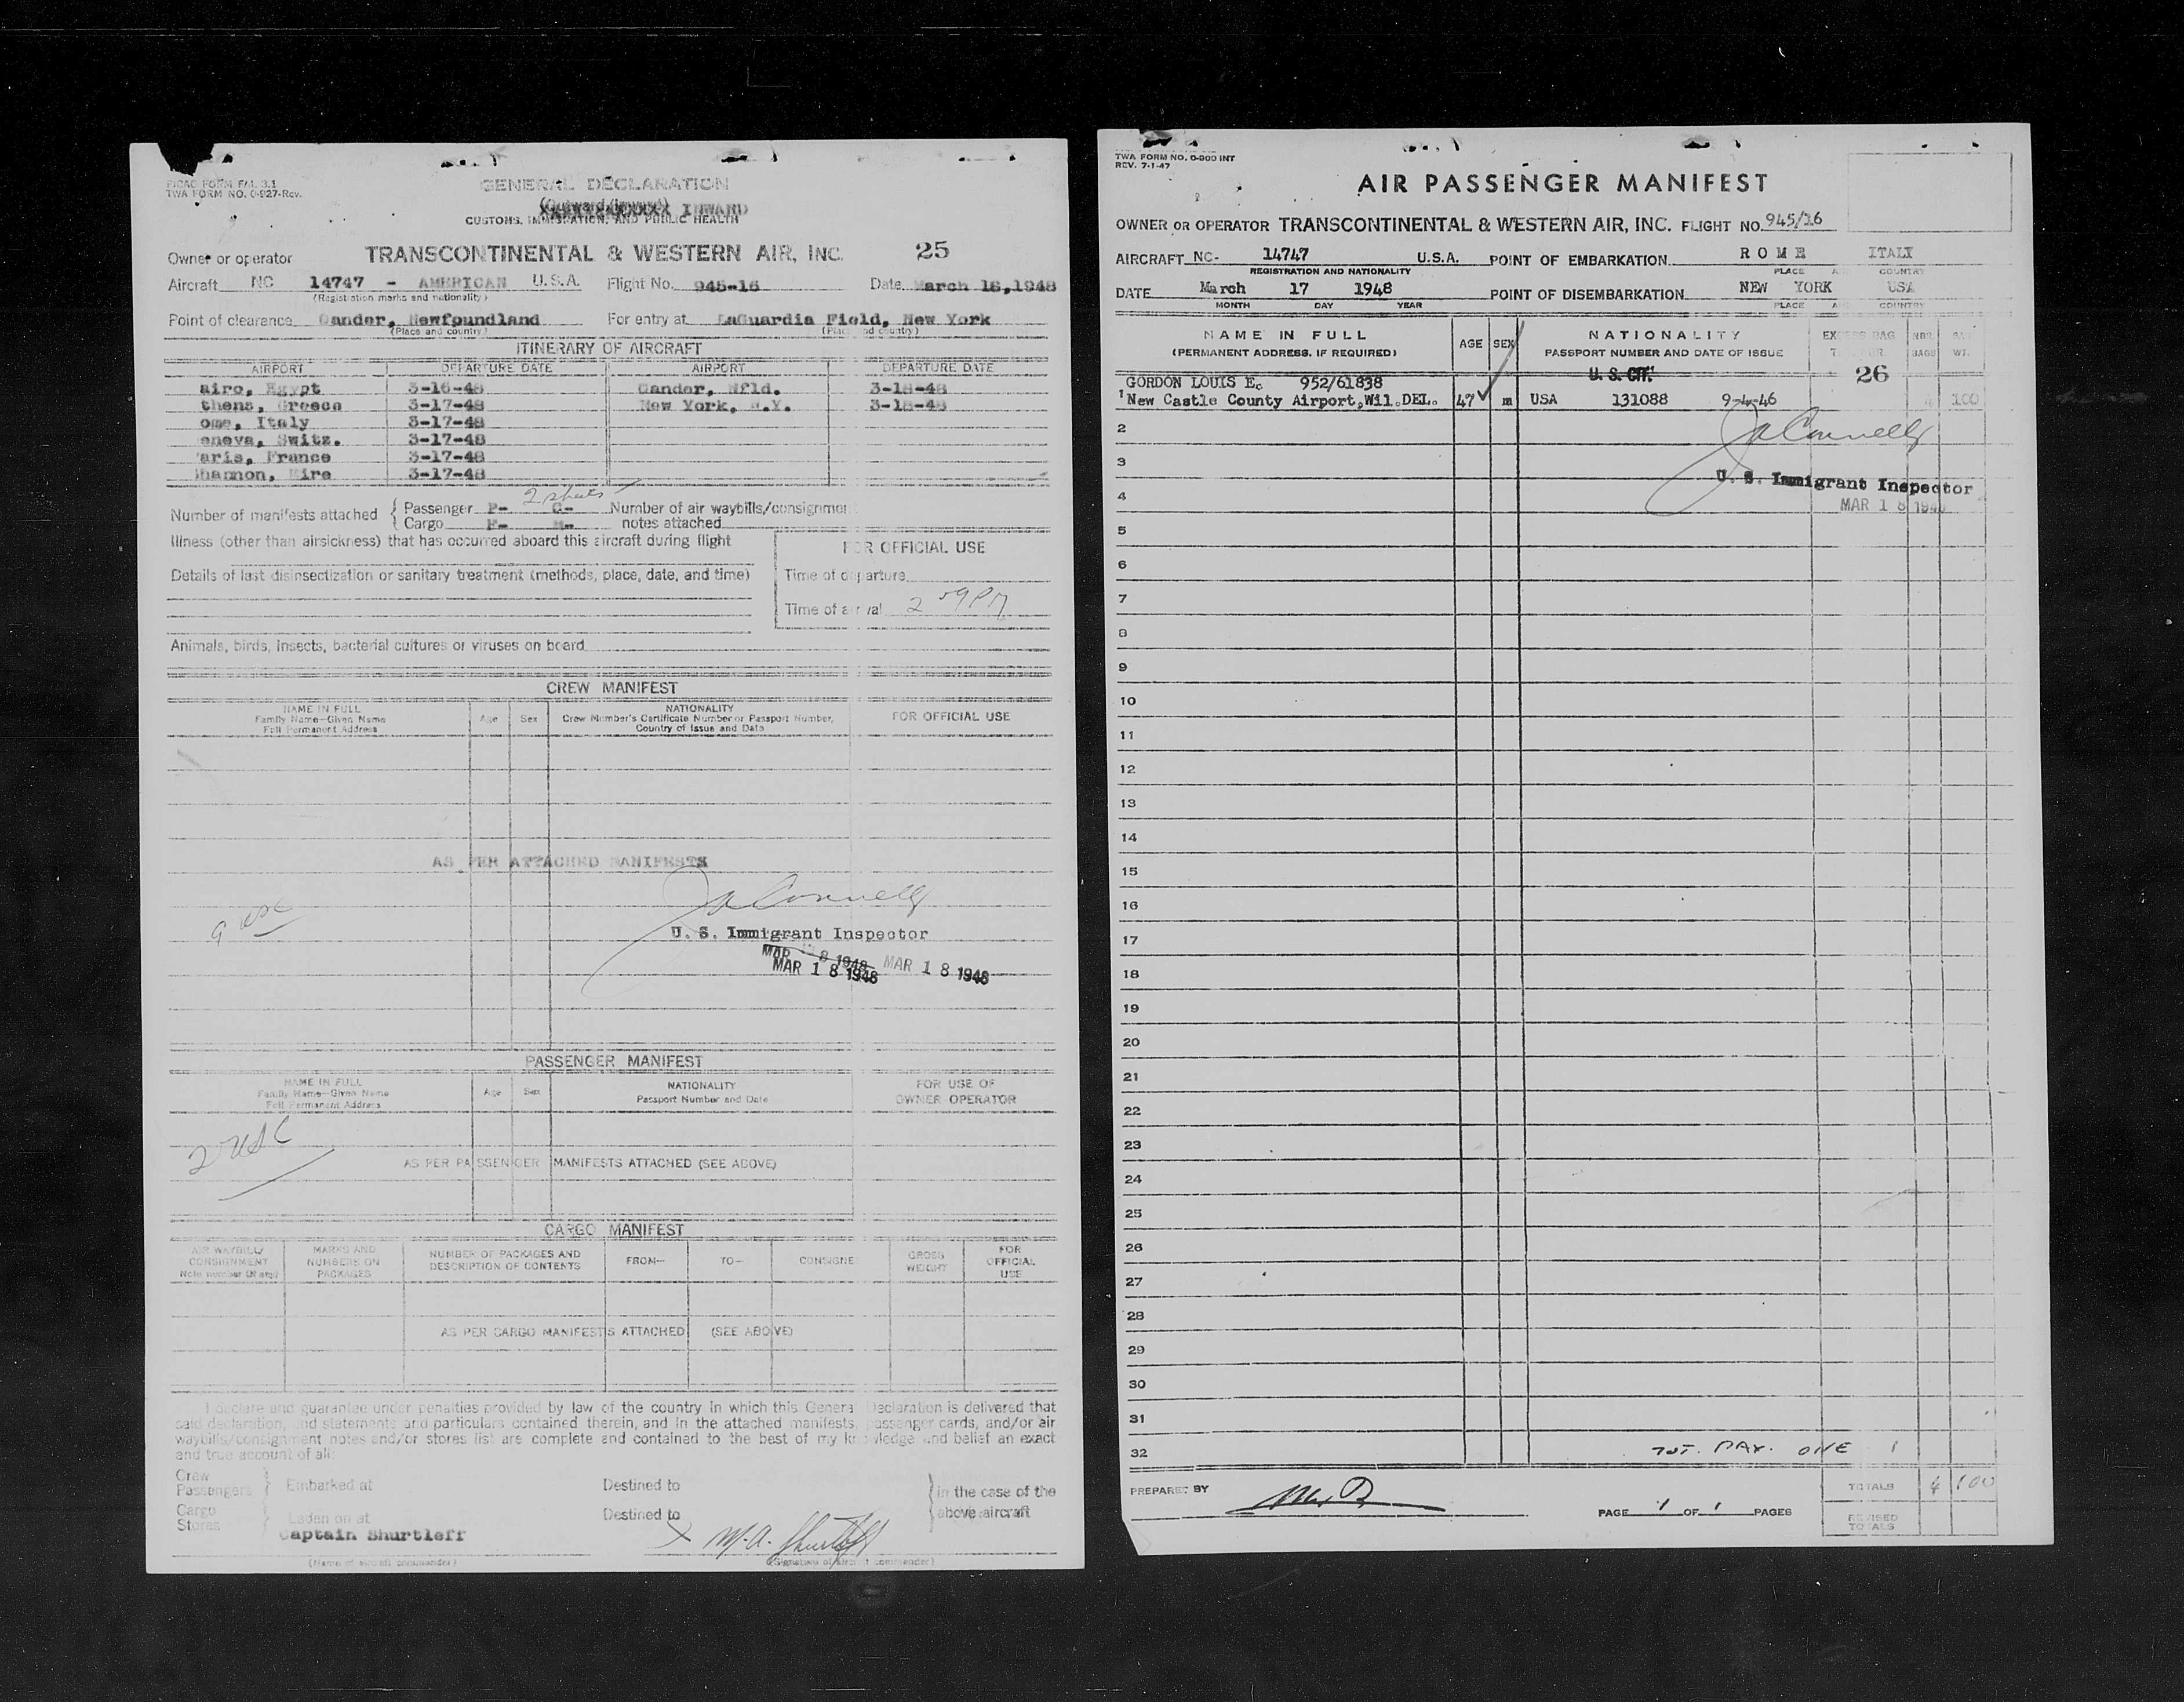 PICAO FORM FAL 3.1
TWA FORM NO. 0-927-Rev.
GENERAL DECLARATION
(Outward/Inward)
XXXXXXXXXXXX INWARD
CUSTOMS, IMMIGRATION, AND PUBLIC HEALTH
Owner or operator TRANSCONTINENTAL & WESTERN AIR, INC. 25
Aircraft NC 14747 - AMERICAN U.S.A. Flight No. 945-16 Date March 18,1948
(Registration marks and nationality)
Point of clearance Gander, Newfpundland For entry at LaGuardia Field, New York
(Place and country) (Place and country)
ITINERARY OF AIRCRAFT
AIRPORT DEPARTURE DATE AIRPORT DEPARTURE DATE
airo, Egypt 3-16-48 Gander, Nfld. 3-18-48
thens, Greece 3-17-48 New York, N.Y. 3-18-48
ome, Italy 3-17-48
eneva, Switz. 3-17-48
aris, France 3-17-48
Shannon, Eire 3-17-48
2 sheets
Number of manifests attached { Passenger P- C- Number of air waybills/consignment
{ Cargo F- M- notes attached
Illness (other than airsickness) that has occurred aboard this aircraft during flight
FOR OFFICIAL USE
Details of last disinsectization or sanitary treatment (methods, place, date, and time)
Time of departure
Time of arrival 2 59 PM
Animals, birds, insects, bacterial cultures or viruses on board
CREW MANIFEST
NAME IN FULL
Family Name—Given Name
Full Permanent Address
Age Sex
NATIONALITY
Crew Member's Certificate Number or Passport Number,
Country of Issue and Date
FOR OFFICIAL USE
AS PER ATTACHED MANIFESTS
9 usc
JaConnelly
U. S. Immigrant Inspector
MAR 18 1948
MAR 18 1948 MAR 18 1948
PASSENGER MANIFEST
NAME IN FULL
Family Name—Given Name
Full Permanent Address
Age Sex
NATIONALITY
Passport Number and Date
FOR USE OF
OWNER OPERATOR
2 USC
AS PER PASSENGER MANIFESTS ATTACHED (SEE ABOVE)
CARGO MANIFEST
AIR WAYBILL/
CONSIGNMENT
MARKS AND
NUMBERS ON
PACKAGES
NUMBER OF PACKAGES AND
DESCRIPTION OF CONTENTS
FROM—
TO—
CONSIGNE
GROSS
WEIGHT
FOR
OFFICIAL
USE
AS PER CARGO MANIFESTS ATTACHED (SEE ABOVE)
I declare and guarantee under penalties provided by law of the country in which this General Declaration is delivered that
said declaration, and statements and particulars contained therein, and in the attached manifests, passenger cards, and/or air
waybills/consignment notes and/or stores list are complete and contained to the best of my knowledge and belief an exact
and true account of all:
Crew
Passengers } Embarked at Destined to } in the case of the
Cargo
Stores } Laden on at Destined to above aircraft
Captain Shurtleff
X M.A. Shurtleff
(Name of aircraft commander) (Signature of aircraft commander)
TWA FORM NO. 0-800 INT
REV. 7-1-47
AIR PASSENGER MANIFEST
OWNER OR OPERATOR TRANSCONTINENTAL & WESTERN AIR, INC. FLIGHT NO. 945/16
AIRCRAFT NC- 14747 U.S.A. POINT OF EMBARKATION ROME ITALY
REGISTRATION AND NATIONALITY PLACE COUNTRY
DATE March 17 1948 POINT OF DISEMBARKATION NEW YORK USA
MONTH DAY YEAR PLACE COUNTRY
NAME IN FULL
(PERMANENT ADDRESS, IF REQUIRED)
AGE SEX
NATIONALITY
PASSPORT NUMBER AND DATE OF ISSUE
EXCESS BAG
NBR. BAGS
WT.
U. S. CIT. 26
GORDON LOUIS E. 952/61838
1 New Castle County Airport,Wil.DEL. 47 m USA 131088 9-4-46 4 100
2
JaConnelly
3
U. S. Immigrant Inspector
4
MAR 18 1948
5
6
7
8
9
10
11
12
13
14
15
16
17
18
19
20
21
22
23
24
25
26
27
28
29
30
31
32 TOT. PAX. ONE 1
PREPARED BY
TOTALS 4 100
PAGE 1 OF 1 PAGES
REVISED
TOTALS